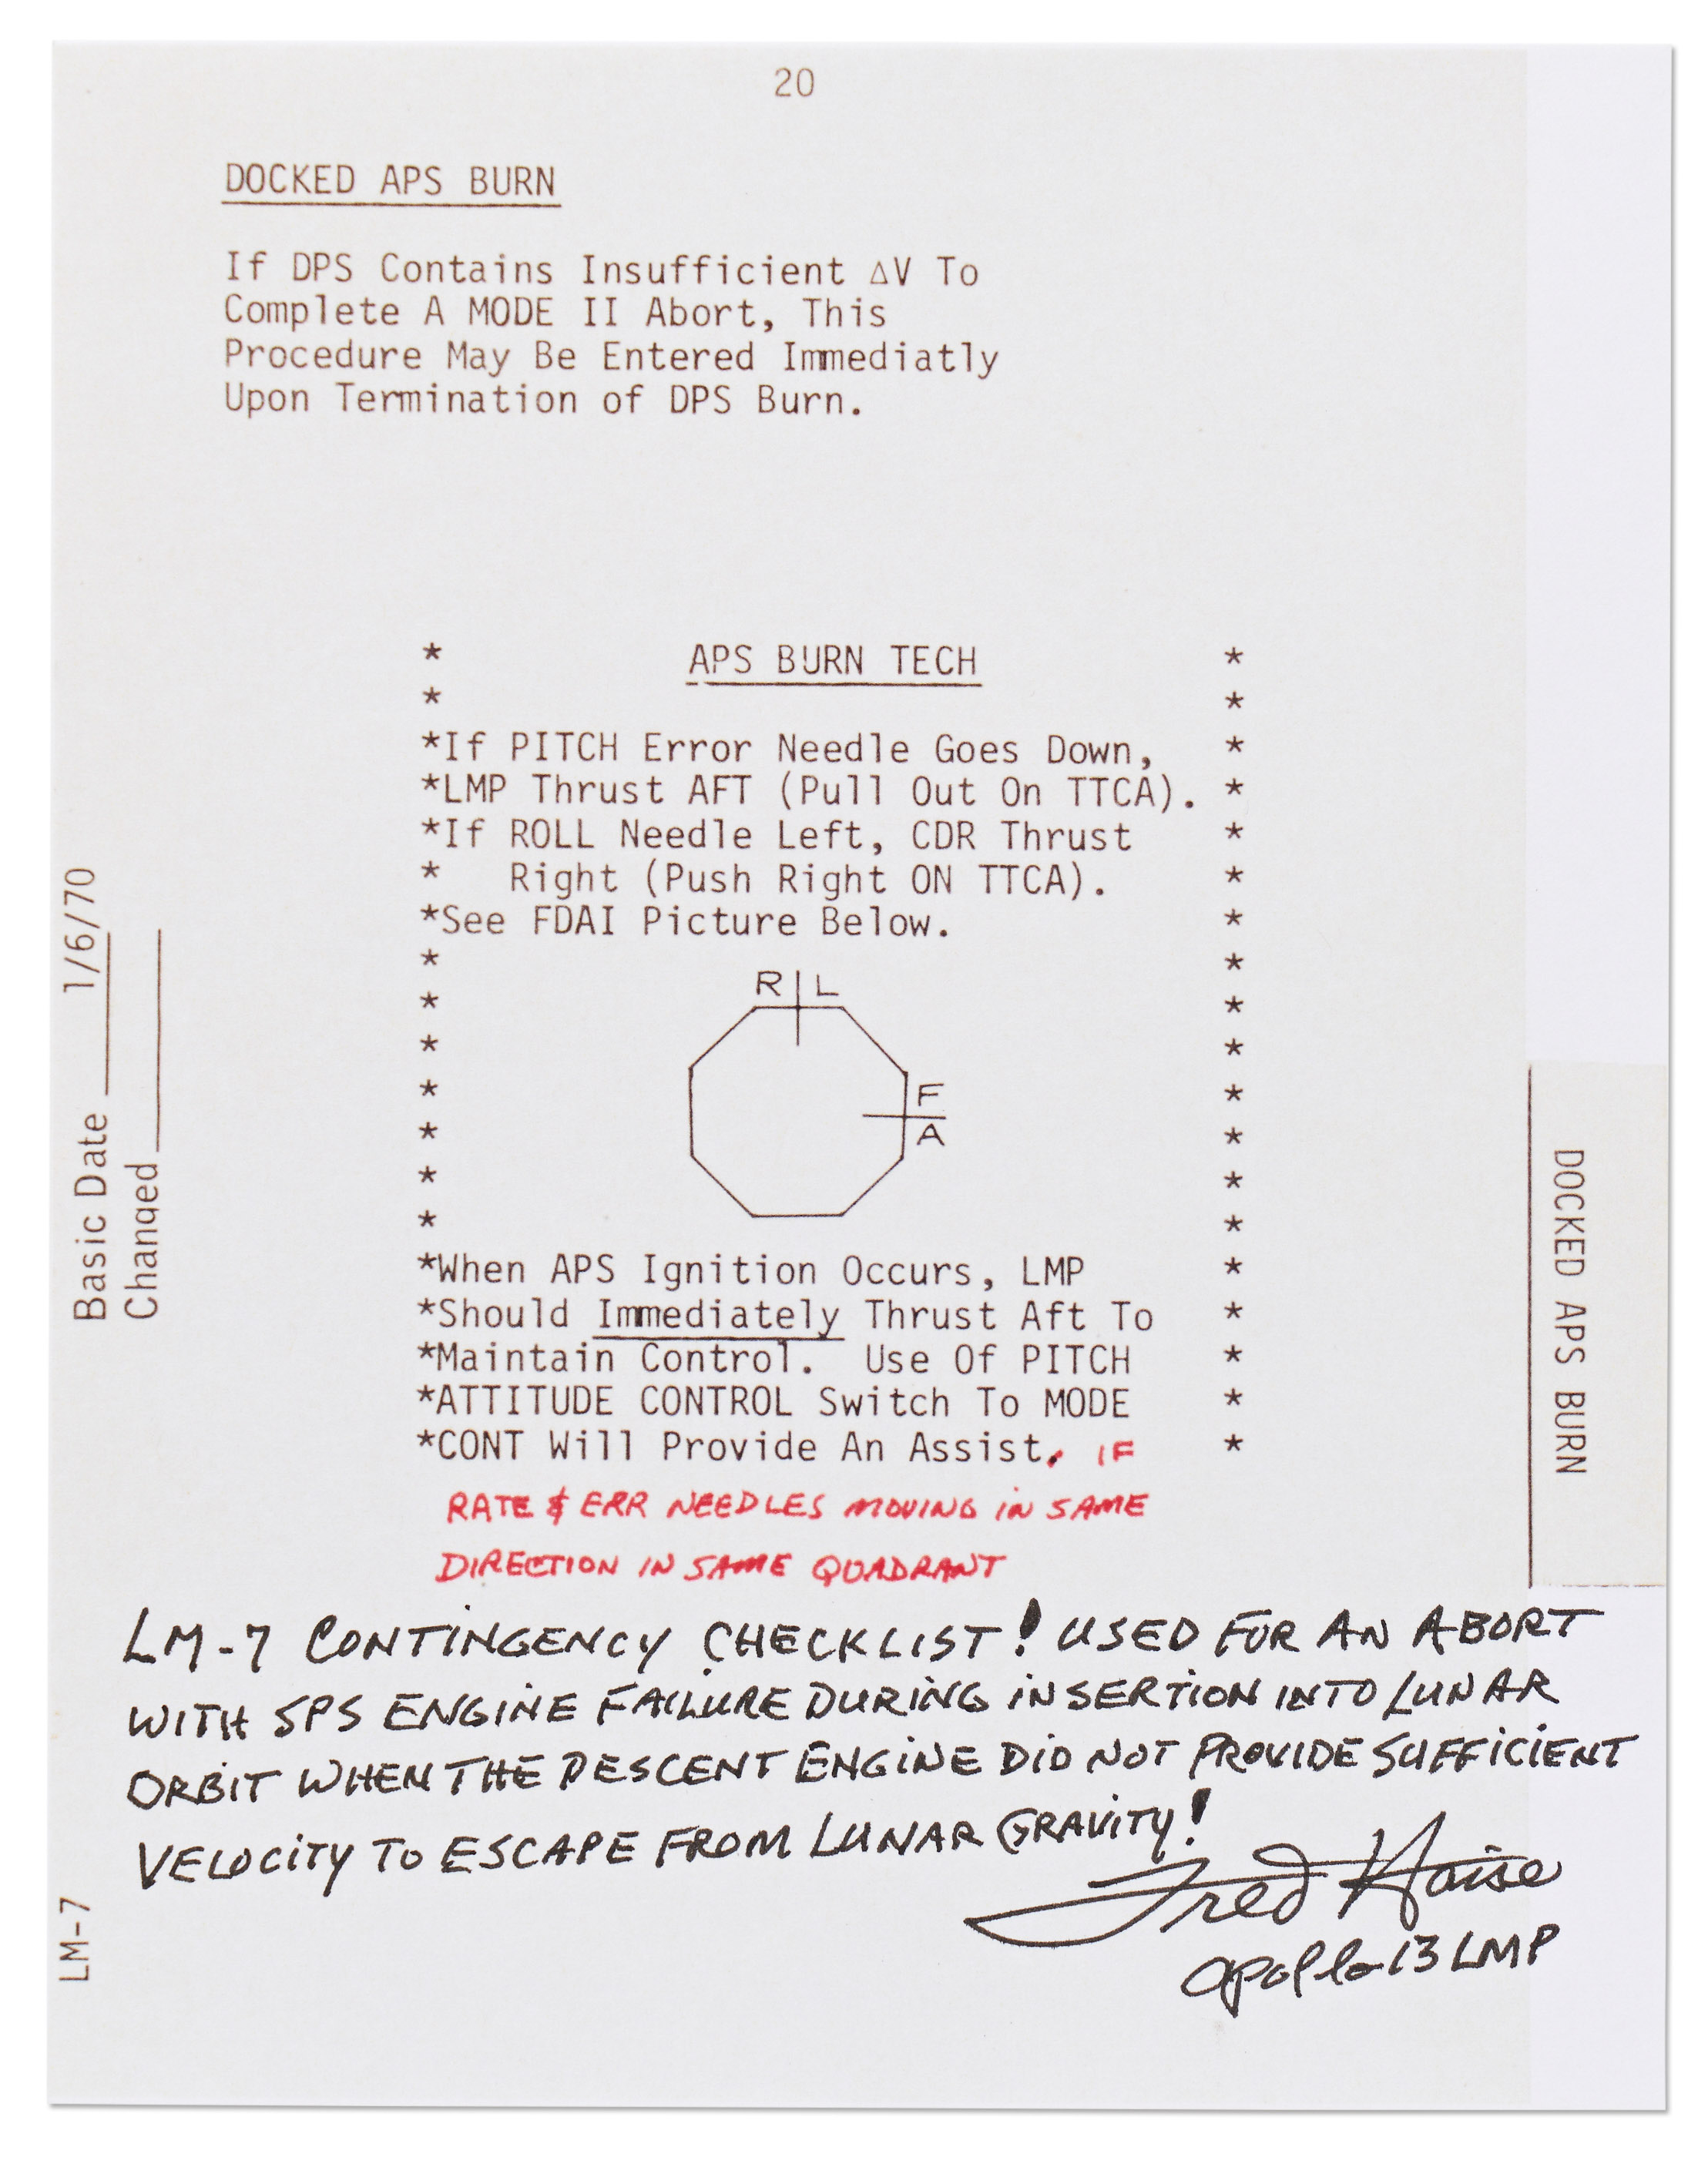 20
DOCKED APS BURN
If DPS Contains Insufficient ΔV To
Complete A MODE II Abort, This
Procedure May Be Entered Immediatly
Upon Termination of DPS Burn.
* APS BURN TECH *
* *
*If PITCH Error Needle Goes Down, *
*LMP Thrust AFT (Pull Out On TTCA). *
*If ROLL Needle Left, CDR Thrust *
* Right (Push Right ON TTCA). *
*See FDAI Picture Below. *
* *
* R L *
* *
* F *
* A *
* *
* *
*When APS Ignition Occurs, LMP *
*Should Immediately Thrust Aft To *
*Maintain Control. Use Of PITCH *
*ATTITUDE CONTROL Switch To MODE *
*CONT Will Provide An Assist. IF *
RATE & ERR NEEDLES MOVING IN SAME
DIRECTION IN SAME QUADRANT
LM-7 CONTINGENCY CHECKLIST! USED FOR AN ABORT
WITH SPS ENGINE FAILURE DURING INSERTION INTO LUNAR
ORBIT WHEN THE DESCENT ENGINE DID NOT PROVIDE SUFFICIENT
VELOCITY TO ESCAPE FROM LUNAR GRAVITY!
Fred Haise
Apollo 13 LMP
Basic Date 1/6/70
Changed
LM-7
DOCKED APS BURN